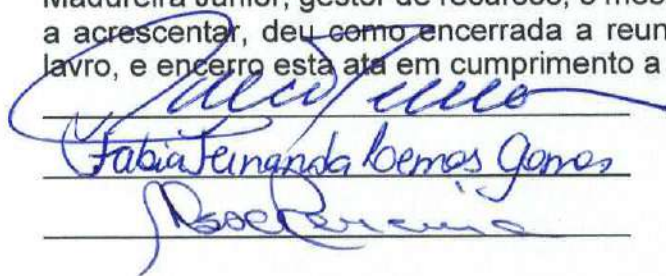 Madureira Júnior, gestor de recursos, o mes
a acrescentar, deu como encerrada a reun
lavro, e encerro esta ata em cumprimento a
Fabia Fernanda Lemos Gomes